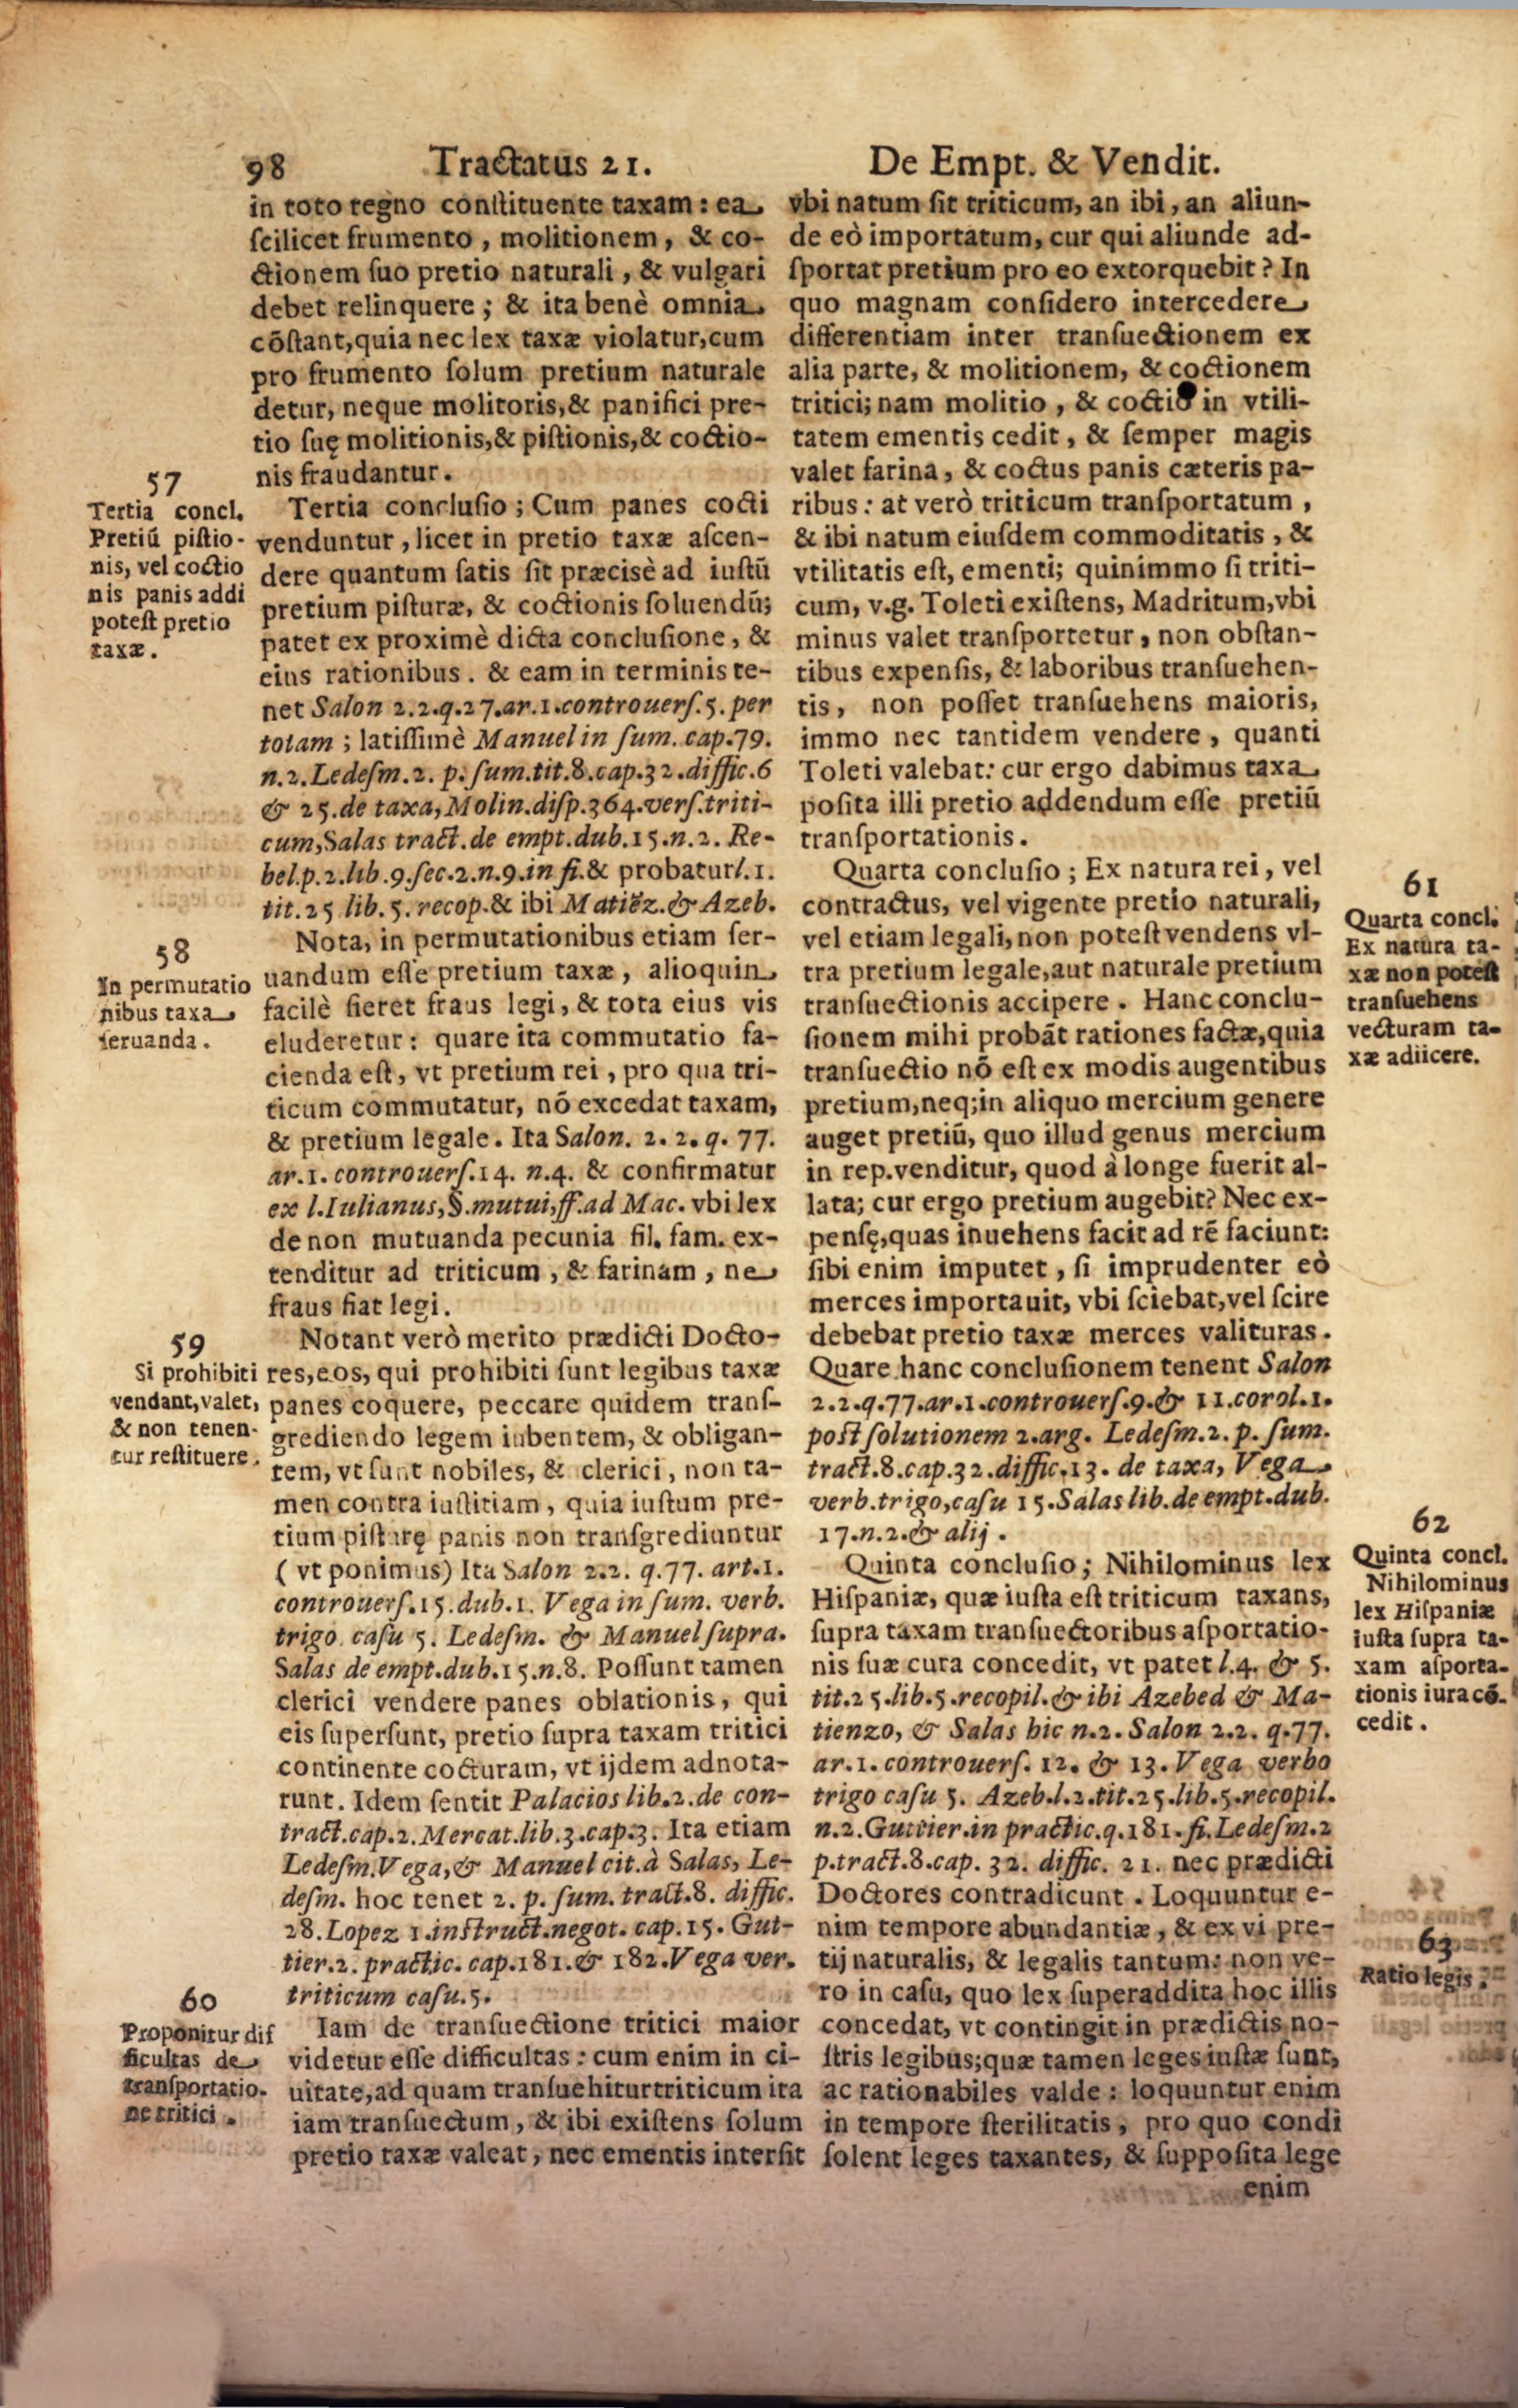 98 Tractatus 21. De Empt. & Vendit.
in toto regno constituente taxam: ea
scilicet frumento, molitionem, & co-
ctionem suo pretio naturali, & vulgari
debet relinquere; & ita benè omnia
cõstant, quia nec lex taxæ violatur, cum
pro frumento solum pretium naturale
detur, neque molitoris, & panifici pre-
tio suę molitionis, & pistionis, & coctio-
nis fraudantur.
57
Tertia concl.
Pretiũ pistio-
nis, vel coctio
nis panis addi
potest pretio
taxæ.
Tertia conclusio; Cum panes cocti
venduntur, licet in pretio taxæ ascen-
dere quantum satis sit præcisè ad iustũ
pretium pisturæ, & coctionis soluendũ;
patet ex proximè dicta conclusione, &
eius rationibus. & eam in terminis te-
net Salon 2.2.q.27.ar.1.controuers.5. per
totam; latissimè Manuel in sum. cap.79.
n.2. Ledesm.2. p. sum.tit.8.cap.32.diffic.6
& 25.de taxa, Molin.disp.364.vers.triti-
cum, Salas tract.de empt.dub.15.n.2. Re-
bel.p.2.lib.9.sec.2.n.9.in fi.& probatur l.1.
tit.25 lib.5.recop.& ibi Matiēz.& Azeb.
58
In permutatio
nibus taxa
seruanda.
Nota, in permutationibus etiam ser-
uandum esse pretium taxæ, alioquin
facilè fieret fraus legi, & tota eius vis
eluderetur: quare ita commutatio fa-
cienda est, vt pretium rei, pro qua tri-
ticum commutatur, nõ excedat taxam,
& pretium legale. Ita Salon. 2. 2. q. 77.
ar.1. controuers.14. n.4. & confirmatur
ex l.Iulianus,§.mutui,ff.ad Mac. vbi lex
de non mutuanda pecunia fil. fam. ex-
tenditur ad triticum, & farinam, ne
fraus fiat legi.
59
Si prohibiti
vendant, valet,
& non tenen-
tur restituere.
Notant verò merito prædicti Docto-
res, eos, qui prohibiti sunt legibus taxæ
panes coquere, peccare quidem trans-
grediendo legem iubentem, & obligan-
tem, vt sunt nobiles, & clerici, non ta-
men contra iustitiam, quia iustum pre-
tium pisturę panis non transgrediuntur
( vt ponimus) Ita Salon 2.2. q.77. art.1.
controuers.15.dub.1. Vega in sum. verb.
trigo casu 5. Ledesm. & Manuel supra.
Salas de empt.dub.15.n.8. Possunt tamen
clerici vendere panes oblationis, qui
eis supersunt, pretio supra taxam tritici
continente cocturam, vt ijdem adnota-
runt. Idem sentit Palacios lib.2.de con-
tract.cap.2. Mercat.lib.3.cap.3. Ita etiam
Ledesm.Vega,& Manuel cit.à Salas, Le-
desm. hoc tenet 2. p. sum. tract.8. diffic.
28.Lopez 1.instruct.negot. cap.15. Gut-
tier.2. practic. cap.181.& 182.Vega ver.
triticum casu.5.
60
Proponitur dif
ficultas de
transportatio-
ne tritici.
Iam de transuectione tritici maior
videtur esse difficultas: cum enim in ci-
uitate, ad quam transuehitur triticum ita
iam transuectum, & ibi existens solum
pretio taxæ valeat, nec ementis intersit
vbi natum sit triticum, an ibi, an aliun-
de eò importatum, cur qui aliunde ad-
sportat pretium pro eo extorquebit? In
quo magnam considero intercedere
differentiam inter transuectionem ex
alia parte, & molitionem, & coctionem
tritici; nam molitio, & coctio in vtili-
tatem ementis cedit, & semper magis
valet farina, & coctus panis cæteris pa-
ribus: at verò triticum transportatum,
& ibi natum eiusdem commoditatis, &
vtilitatis est, ementi; quinimmo si triti-
cum, v.g. Toleti existens, Madritum, vbi
minus valet transportetur, non obstan-
tibus expensis, & laboribus transuehen-
tis, non posset transuehens maioris,
immo nec tantidem vendere, quanti
Toleti valebat: cur ergo dabimus taxa
posita illi pretio addendum esse pretiũ
transportationis.
61
Quarta concl.
Ex natura ta-
xæ non potest
transuehens
vecturam ta-
xæ adiicere.
Quarta conclusio; Ex natura rei, vel
contractus, vel vigente pretio naturali,
vel etiam legali, non potest vendens vl-
tra pretium legale, aut naturale pretium
transuectionis accipere. Hanc conclu-
sionem mihi probãt rationes factæ, quia
transuectio nõ est ex modis augentibus
pretium, neq; in aliquo mercium genere
auget pretiũ, quo illud genus mercium
in rep. venditur, quod à longe fuerit al-
lata; cur ergo pretium augebit? Nec ex-
pensę, quas inuehens facit ad rẽ faciunt:
sibi enim imputet, si imprudenter eò
merces importauit, vbi sciebat, vel scire
debebat pretio taxæ merces valituras.
Quare hanc conclusionem tenent Salon
2.2.q.77.ar.1.controuers.9.& 11.corol.1.
post solutionem 2.arg. Ledesm.2. p. sum.
tract.8.cap.32.diffic.13. de taxa, Vega
verb.trigo,casu 15.Salas lib.de empt.dub.
17.n.2.& alij.
62
Quinta concl.
Nihilominus
lex Hispaniæ
iusta supra ta-
xam asporta-
tionis iura cõ-
cedit.
Quinta conclusio; Nihilominus lex
Hispaniæ, quæ iusta est triticum taxans,
supra taxam transuectoribus asportatio-
nis suæ cura concedit, vt patet l.4. & 5.
tit.25.lib.5.recopil.& ibi Azebed & Ma-
tienzo, & Salas hic n.2. Salon 2.2. q.77.
ar.1. controuers. 12. & 13. Vega verbo
trigo casu 5. Azeb.l.2.tit.25.lib.5.recopil.
n.2.Guttier.in practic.q.181.fi.Ledesm.2
p.tract.8.cap. 32. diffic. 21. nec prædicti
Doctores contradicunt. Loquuntur e-
nim tempore abundantiæ, & ex vi pre-
tij naturalis, & legalis tantum: non ve-
ro in casu, quo lex superaddita hoc illis
concedat, vt contingit in prædictis no-
stris legibus; quæ tamen leges iustæ sunt,
ac rationabiles valde: loquuntur enim
in tempore sterilitatis, pro quo condi
solent leges taxantes, & supposita lege
63
Ratio legis.
enim